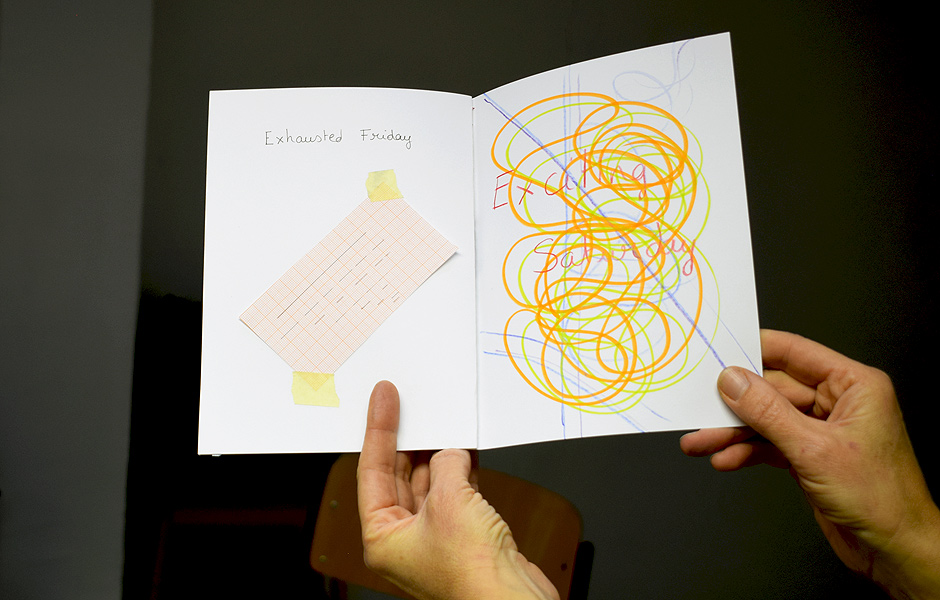 Exhausted Friday
Exciting
Saturday